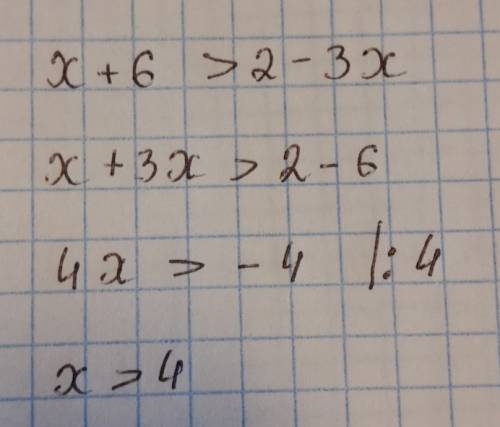 x + 6 > 2 - 3x
x + 3x > 2 - 6
4x > - 4 |: 4
x > 4